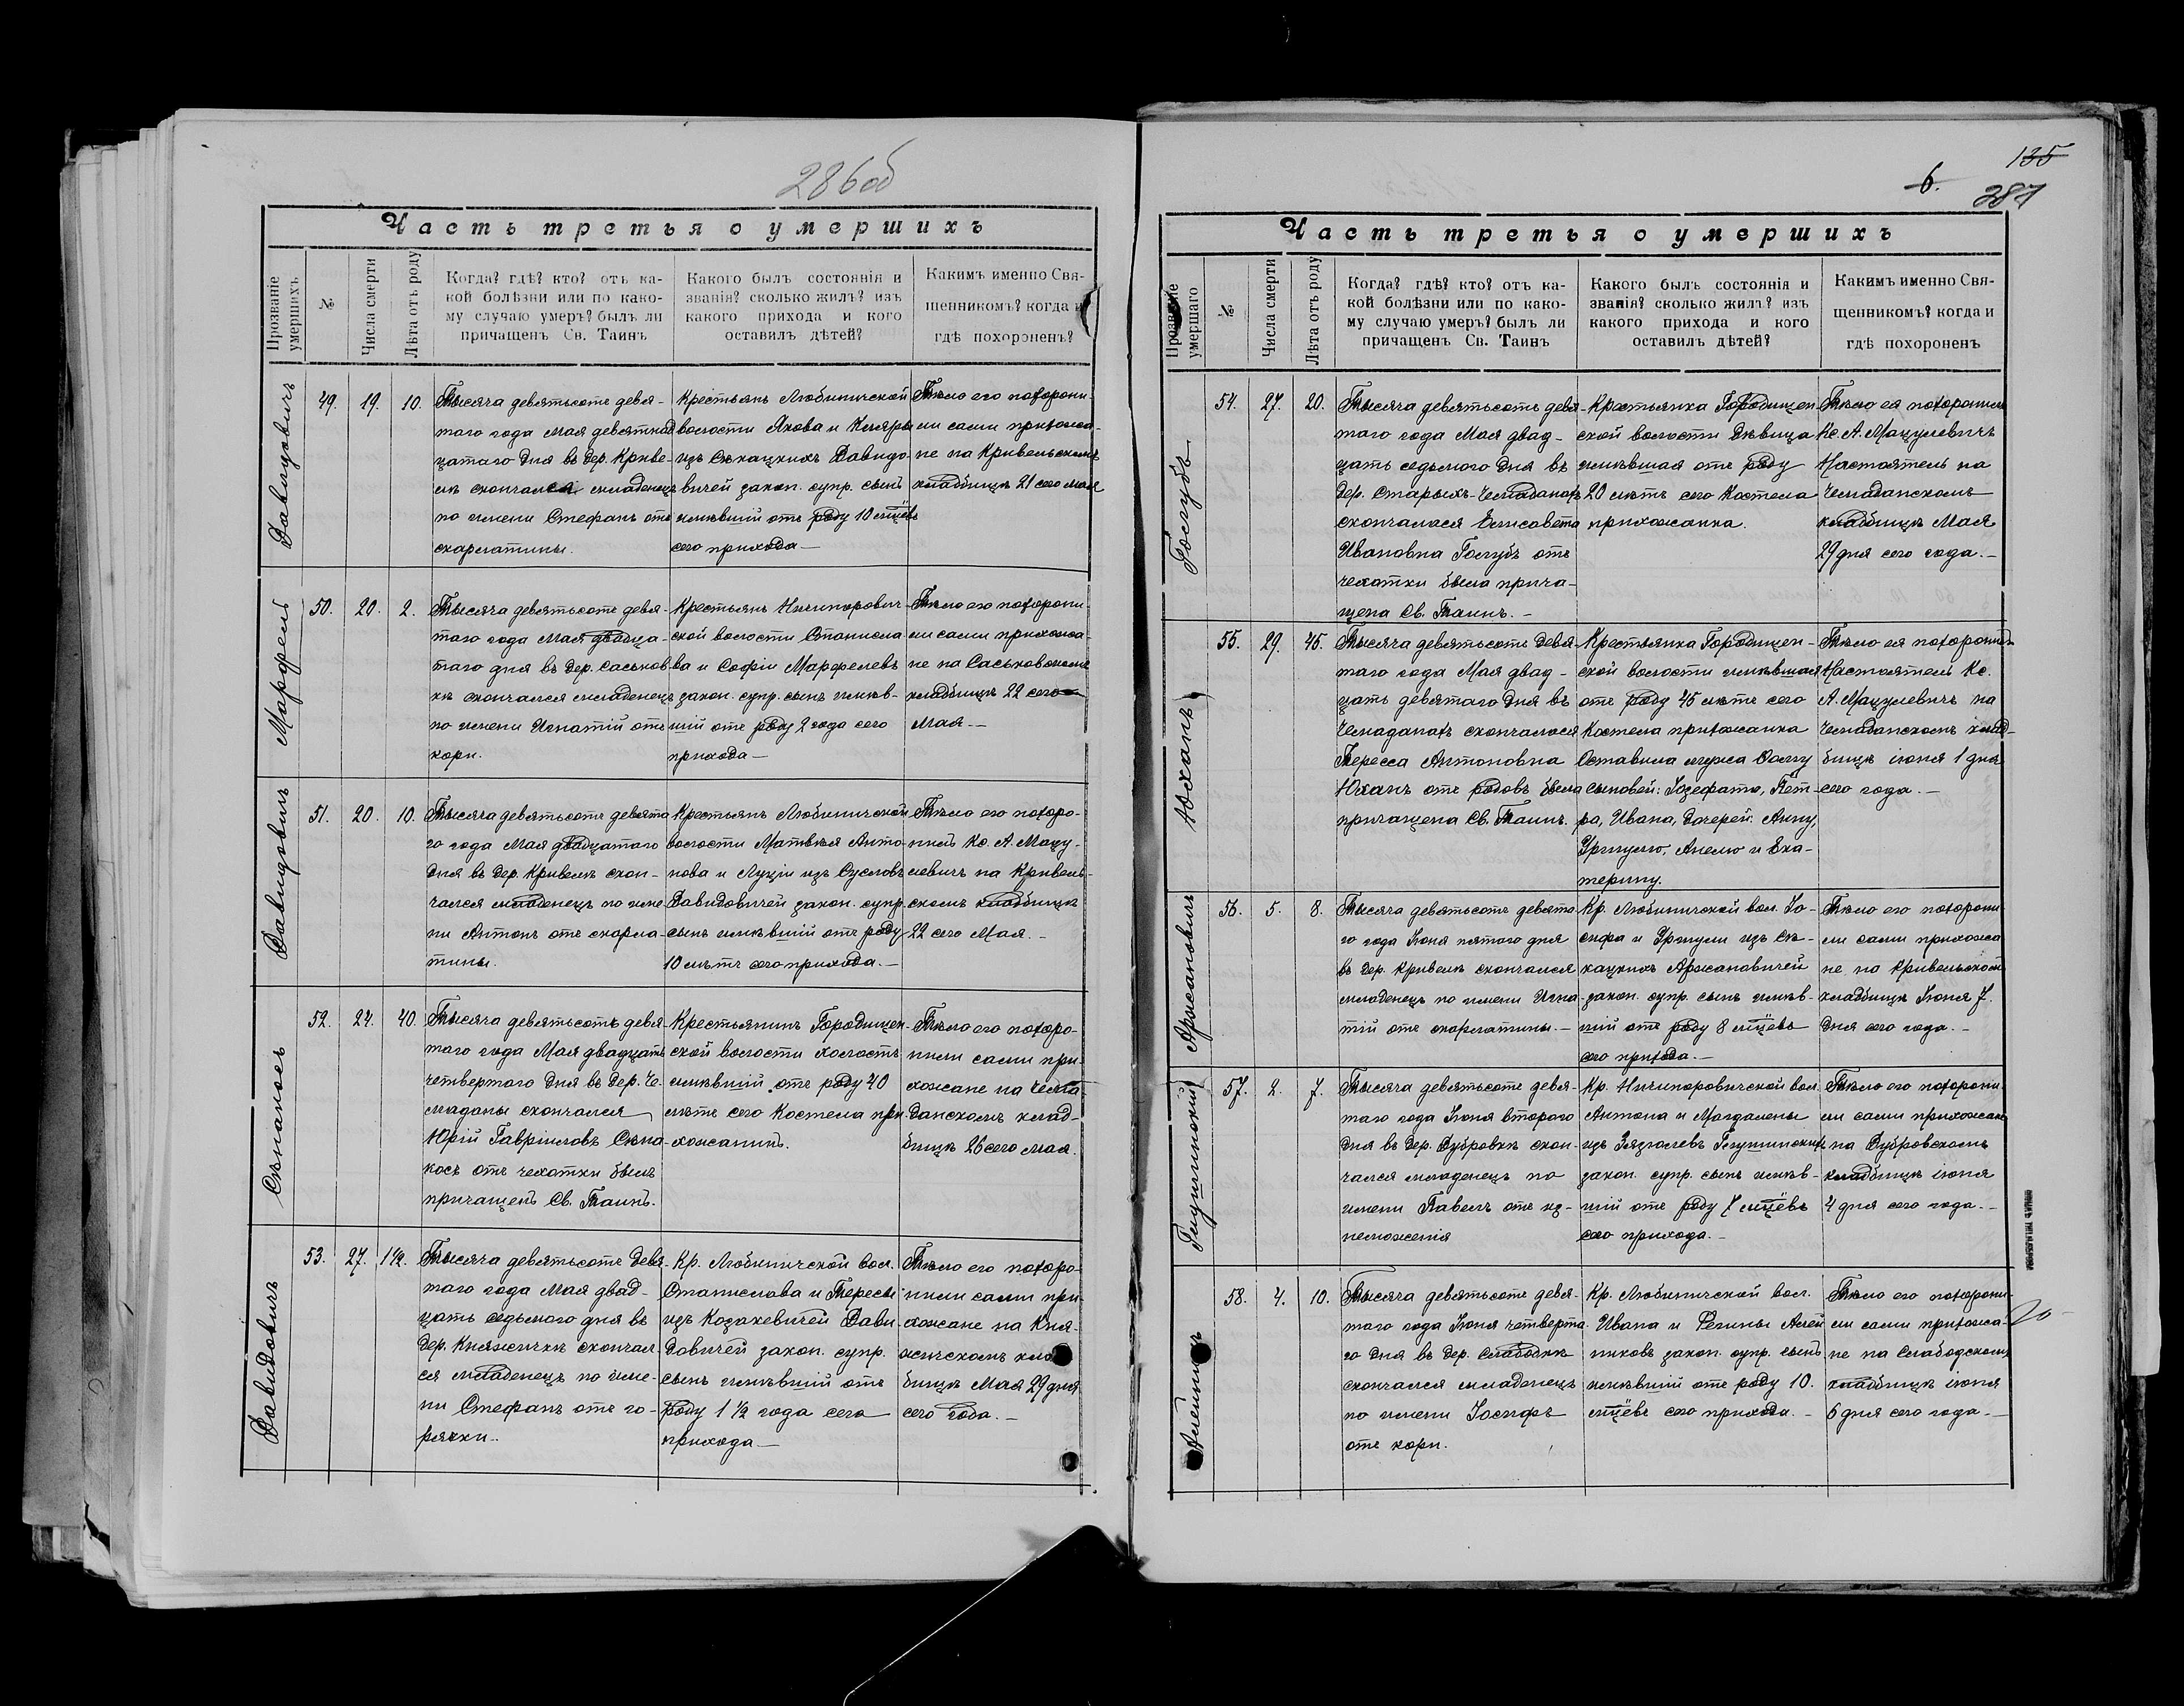 286об
Часть третья о умершихъ
Прозваніе умершихъ
№
Числа смерти
Лѣта отъ роду
Когда? гдѣ? кто? отъ ка-
кой болѣзни или по како-
му случаю умеръ? былъ ли
причащенъ Св. Таинъ
Какого былъ состоянія и
званія? сколько жилъ? изъ
какого прихода и кого
оставилъ дѣтей?
Какимъ именно Свя-
щенникомъ? когда и
гдѣ похороненъ?
Давидовичъ
49. 19. 10.
Тысяча девятьсотъ девя-
таго года мая девятнад
цатаго дня въ дер. Криве-
лѣ скончался младенецъ
по имени Стефанъ отъ
скарлатины.
Крестьянъ Любиничской
волости Якова и Кляры
изъ Сккацкихъ Давидо-
вичей закон. супр. сынъ
имѣвшій отъ роду 10 м̃цёвъ
сего прихода—
Тѣло его похорони-
ли сами прихожа-
не на Кривельскомъ
кладбищѣ 21 сего мая
Марфель
50. 20. 2.
Тысяча девятьсотъ девя-
таго года Мая двадца-
таго дня въ дер. Саськов
кѣ скончался младенецъ
по имени Игнатій отъ
кори.
Крестьянъ Ничипорович-
ской волости Станисла
ва и Софіи Марфелевъ
закон. супр. сынъ имѣв-
шій отъ роду 2 года сего
прихода—
Тѣло его похорони
ли сами прихожа-
не на Саськовскомъ
кладбищѣ 22 сего
мая.—
Давидовичъ
51. 20. 10.
Тысяча девятьсотъ девята
го года Мая двадцатаго
дня въ дер. Кривелѣ скон-
чался младенецъ по име
ни Антонъ отъ скарла-
тины.
Крестьянъ Любиничской
волости Матвѣя Анто-
нова и Луціи изъ Сусловъ
Давидовичей закон. супр.
сынъ имѣвшій отъ роду
10 лѣтъ сего прихода.—
Тѣло его похоро-
нилъ Кс. А. Мацу-
левичъ на Кривель-
скомъ кладбищѣ
22 сего Мая.—
52. 24. 40.
Тысяча девятьсотъ девя-
таго года Мая двадцать
четвертаго дня въ дер. Че-
маданы скончался
Юрій Гавріиловъ
косъ отъ чахотки былъ
причащенъ Св. Таинъ.
Крестьянинъ Городищен-
ской волости холостъ
имѣвшій отъ роду 40
лѣтъ сего Костела при-
хожанинъ.
Тѣло его похоро-
нили сами при-
хожане на Чема-
данскомъ клад-
бищѣ 26 сего мая.
Давидовичъ
53. 27. 1½.
Тысяча девятьсотъ девя-
таго года Мая двад-
цать седьмого дня въ
дер. Княжичкѣ скончал
ся младенецъ по име-
ни Стефанъ отъ го-
рячки.
Кр. Любиничской вол.
Станислава и Тересы
изъ Козакевичей Дави-
довичей закон. супр.
сынъ имѣвшій отъ
роду 1½ года сего
прихода—
Тѣло его похоро-
нили сами при-
хожане на Кня-
жичскомъ кла
бищѣ Мая 29 дня
сего года.—
135
6.
287
Часть третья о умершихъ
Прозваніе умершаго
№
Числа смерти
Лѣта отъ роду
Когда? гдѣ? кто? отъ ка-
кой болѣзни или по како-
му случаю умеръ? былъ ли
причащенъ Св. Таинъ
Какого былъ состоянія и
званія? сколько жилъ? изъ
какого прихода и кого
оставилъ дѣтей?
Какимъ именно Свя-
щенникомъ? когда и
гдѣ похороненъ
Голгубъ
54. 27. 20.
Тысяча девятьсотъ девя-
таго года Мая двад-
цать седьмого дня въ
дер. Старыхъ-Чемаданахъ
скончалася Елисавета
Ивановна Голгубъ отъ
чахотки была прича-
щена Св. Таинъ.—
Крестьянка Городищен-
ской волости дѣвица
имѣвшая отъ роду
20 лѣтъ сего Костела
прихожанка.
Тѣло ея похоронилъ
Кс. А. Мацулевичъ
Настоятель на
Чемаданскомъ
кладбищѣ Мая
29 дня сего года.—
Юханъ
55. 29. 45.
Тысяча девятьсотъ девя-
таго года Мая двад-
цать девятаго дня въ
Чемаданахъ скончалася
Тересса Антоновна
Юханъ отъ родовъ была
причащена Св. Таинъ.
Крестьянка Городищен-
ской волости имѣвшая
отъ роду 45 лѣтъ сего
Костела прихожанка
Оставила мужа Фому
сыновей: Іозефата, Пет-
ра, Ивана, дочерей: Анну,
Уршулю, Анелю и Ека-
терину.
Тѣло ея похоронилъ
Настоятель Кс.
А. Мацулевичъ на
Чемаданскомъ клад-
бищѣ іюня 1 дня
сего года.—
Аржановичъ
56. 5. 8.
Тысяча девятьсотъ девята-
го года Іюня пятаго дня
въ дер. Кривелѣ скончался
младенецъ по имени Игна-
тій отъ скарлатины.—
Кр. Любиничской вол. Іо-
сифа и Уршули изъ Ск-
кацкихъ Аржановичей
закон. супр. сынъ имѣв-
шій отъ роду 8 м̃цёвъ
сего прихода.—
Тѣло его похорони
ли сами прихожа
не на Кривельском
кладбищѣ Іюня 7.
дня сего года.—
Глушинскій
57. 2. 7.
Тысяча девятьсотъ девя-
таго года Іюня второго
дня въ дер. Дубровкѣ скон-
чался младенецъ по
имени Павелъ отъ из-
неможенія
Кр. Ничипоровичской вол.
Антона и Магдалены
изъ Глушинскихъ
закон. супр. сынъ имѣв-
шій отъ роду 7 м̃цёвъ
сего прихода.—
Тѣло его похорони-
ли сами прихожане
на Дубровскомъ
кладбищѣ іюня
4 дня сего года.—
58. 4. 10.
Тысяча девятьсотъ девя-
таго года Іюня четверта
го дня въ дер. Слабодкѣ
скончался младенецъ
по имени Іосифъ
отъ кори.
Кр. Любиничской вол.
Ивана и Регины Алей
никовъ закон. супр. сынъ
имѣвшій отъ роду 10.
м̃цёвъ сего прихода.—
Тѣло его похорони-
ли сами прихожа-
не на Слабодскомъ
кладбищѣ іюня
6 дня сего года.—